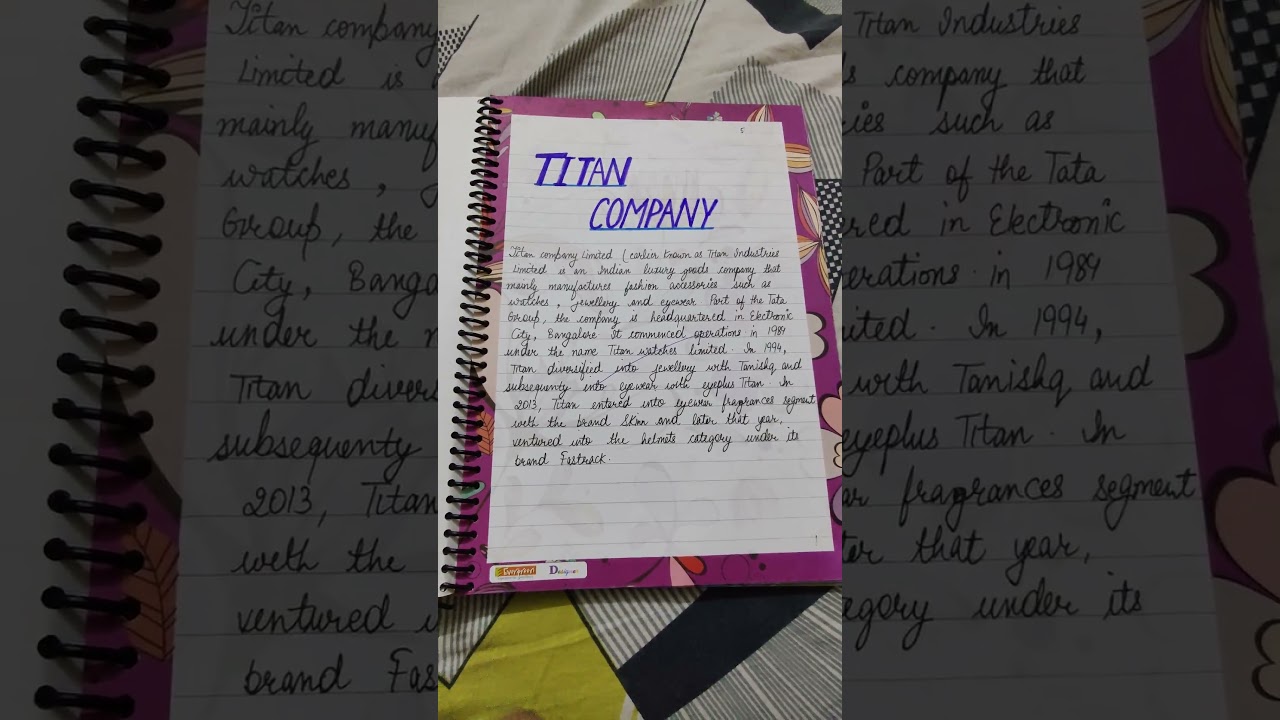 5
TITAN
COMPANY
Titan company Limited (earlier known as Titan Industries
Limited is an Indian luxury goods company that
mainly manufactures fashion accessories such as
watches, jewellery and eyewear Part of the Tata
Group, the company is headquartered in Electronic
City, Bangalore It commenced operations in 1984
under the name Titan watches limited. In 1994,
Titan diversified into jewellery with Tanishq and
subsequenty into eyewear with eyeplus Titan. In
2013, Titan entered into eyewear fragrances segment
with the brand Skinn and later that year,
ventured into the helmets category under its
brand Fastrack.
Evergreen Designer